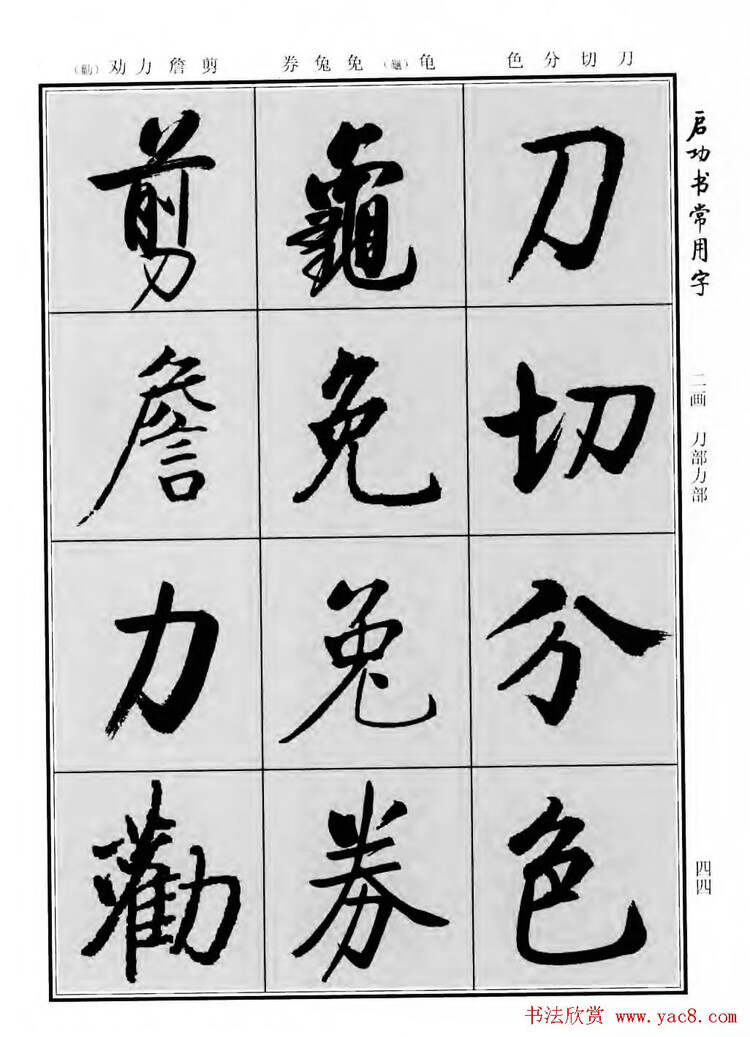 启功书常用字
二画 刀部力部
四四
刀切分色
龟(龜)免兔券
剪詹力劝(勸)
刀切分色
龜免兔券
剪詹力勸
书法欣赏 www.yac8.com